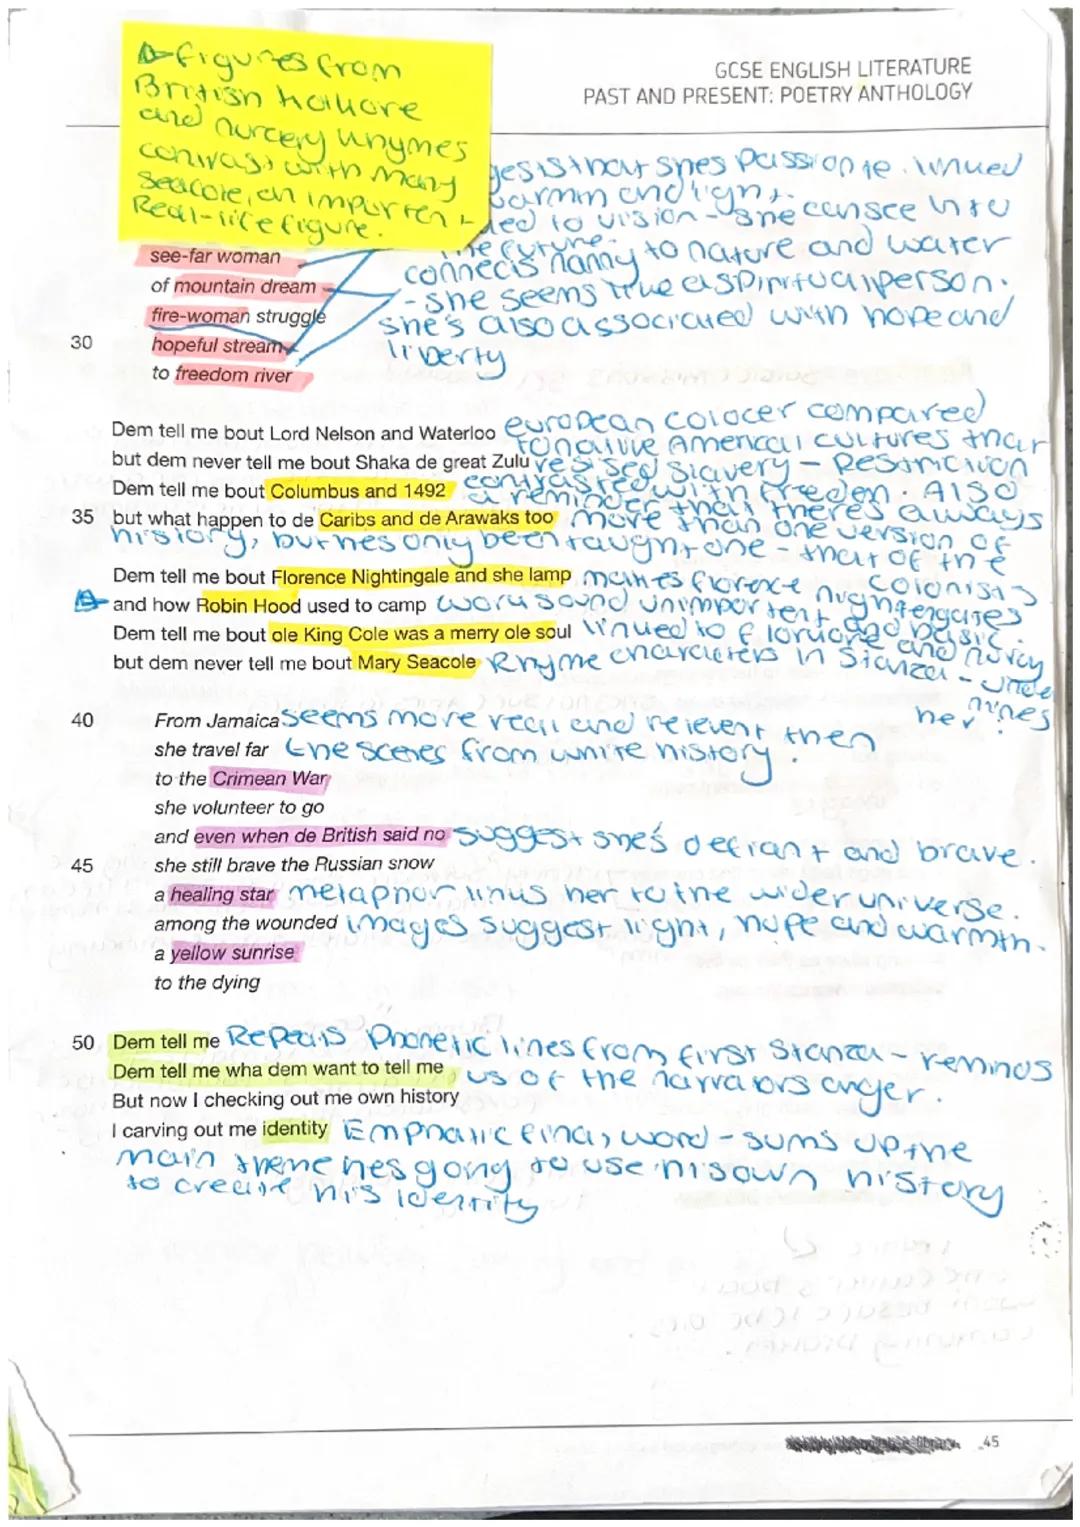 figures from
British folklore
and nurcery rhymes
contrast with Mary
Seacole, an important
Real-life figure.
GCSE ENGLISH LITERATURE
PAST AND PRESENT: POETRY ANTHOLOGY
gests that shes passionte. linked
warmth and light.
ked to vision - she can see into
the future.
connects nanny to nature and water
- she seems like a spiritual person.
she's also associated with hope and
liberty
see-far woman
of mountain dream
fire-woman struggle
30 hopeful stream
to freedom river
Dem tell me bout Lord Nelson and Waterloo
but dem never tell me bout Shaka de great Zulu
Dem tell me bout Columbus and 1492
35 but what happen to de Caribs and de Arawaks too
european compared
to native American cultures that
resised slavery -
contrasted with freedom. Also
a reminder that theres always
more than one version of
history, but hes only been taught one - that of the
colonists
Dem tell me bout Florence Nightingale and she lamp
and how Robin Hood used to camp
Dem tell me bout ole King Cole was a merry ole soul
but dem never tell me bout Mary Seacole
makes florence nightengales
work sound unimportent and basic.
linked to folklore and nurcy
Rhyme characters in Stanza - unde
mines
her.
40 From Jamaica
she travel far
to the Crimean War
she volunteer to go
and even when de British said no
45 she still brave the Russian snow
a healing star
among the wounded
a yellow sunrise
to the dying
seems more real and relevent then
the scenes from white history.
suggest she's defiant and brave.
metaphor links her to the wider universe.
images suggest light, hope and warmth.
50 Dem tell me
Dem tell me wha dem want to tell me
But now I checking out me own history
I carving out me identity
Repeats Phonetic lines from first Stanza - reminds
us of the narrators anger.
Emphatic final word - sums up the
main theme hes going to use his own history
to create his identity
45